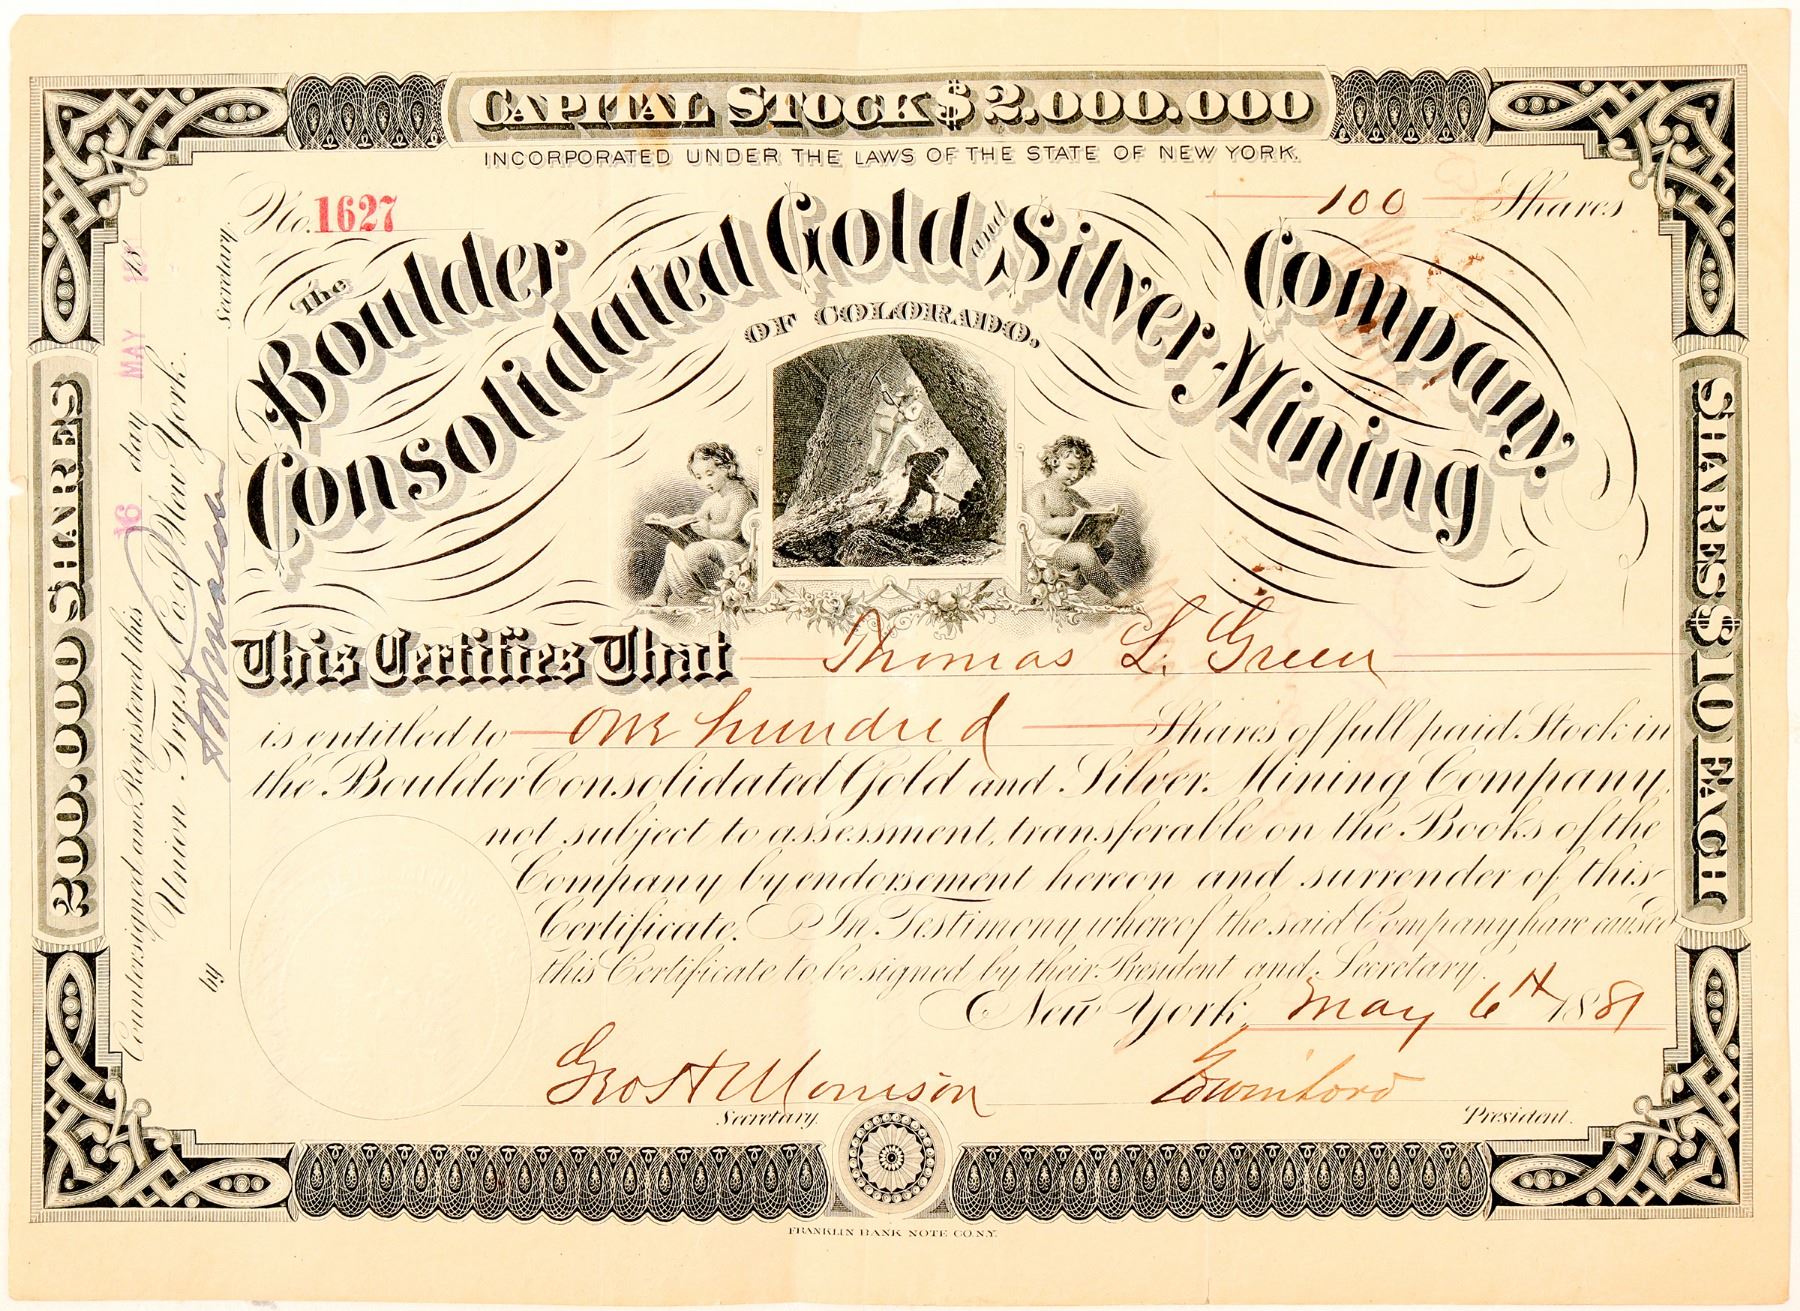 CAPITAL STOCK $2.000.000
INCORPORATED UNDER THE LAWS OF THE STATE OF NEW YORK.
No. 1627
100 Shares
The Boulder
Consolidated Gold and Silver Mining
Company.
OF COLORADO.
This Certifies That Thomas L. Green
is entitled to one hundred Shares of full paid Stock in
the Boulder Consolidated Gold and Silver Mining Company,
not subject to assessment, transferable on the Books of the
Company by endorsement hereon and surrender of this
Certificate. In Testimony whereof the said Company have caused
this Certificate to be signed by their President and Secretary.
New York, May 6th 1881
Geo H Morrison
Secretary.
President.
200.000 SHARES
SHARES $10 EACH
Countersigned and Registered this 16 day MAY 18
Union Trust Co. of New York.
by Secretary.
FRANKLIN BANK NOTE CO. N.Y.